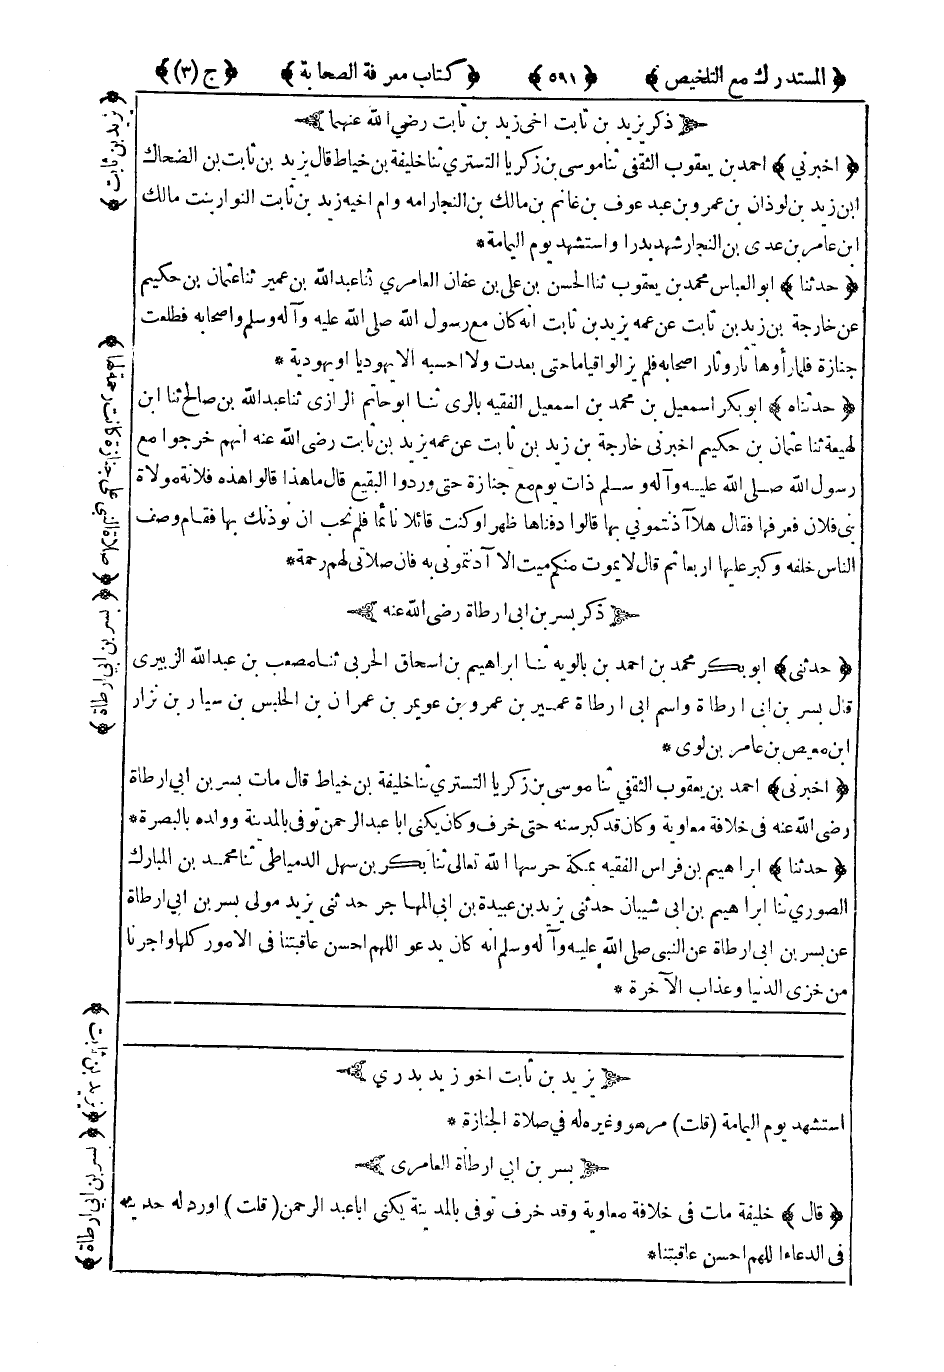 ﴿ المستدرك مع التلخيص ﴾ ﴿ ٥٩١ ﴾ ﴿ كتاب معرفة الصحابة ﴾ ﴿ ج (٣) ﴾
ذكر يزيد بن ثابت اخى زيد بن ثابت رضي الله عنهما
﴿ اخبرني ﴾ احمد بن يعقوب الثقفى ثنا موسى بن زكريا التستري ثنا خليفة بن خياط قال يزيد بن ثابت بن الضحاك
ابن زيد بن لوذان بن عمرو بن عبد عوف بن غانم بن مالك بن النجار امه وام اخيه زيد بن ثابت النوار بنت مالك
ابن عامر بن عدى بن النجار شهد بدرا واستشهد يوم اليمامة *
﴿ حدثنا ﴾ ابو العباس محمد بن يعقوب ثنا الحسن بن على بن عفان العامري ثنا عبد الله بن عمير ثنا عثمان بن حكيم
عن خارجة بن زيد بن ثابت عن عمه يزيد بن ثابت انه كان مع رسول الله صلى الله عليه وآله وسلم واصحابه فطلعت
جنازة فلما رأوها ثار وثار اصحابه فلم يزالوا قياما حتى بعدت ولا احسبه الا يهوديا او يهودية *
﴿ حدثناه ﴾ ابو بكر اسمعيل بن محمد بن اسمعيل الفقيه بالرى ثنا ابو حاتم الرازى ثنا عبد الله بن صالح ثنا ابن
لهيعة ثنا عثمان بن حكيم اخبرنى خارجة بن زيد بن ثابت عن عمه يزيد بن ثابت رضى الله عنه انهم خرجوا مع
رسول الله صلى الله عليه وآله وسلم ذات يوم مع جنازة حتى وردوا البقيع قال ماهذا قالوا هذه فلانة مولاة
بنى فلان فعرفها فقال هلا آذنتمونى بها قالوا دفناها ظهرا وكنت قائلا نائما فلم نحب ان نوذنك بها فقام وصف
الناس خلفه وكبر عليها اربعا ثم قال لا يموت منكم ميت الا آذنتمونى به فان صلاتى لهم رحمة *
ذكر بسر بن ابى ارطاة رضى الله عنه
﴿ حدثنى ﴾ ابو بكر محمد بن احمد بن بالويه ثنا ابراهيم بن اسحاق الحربى ثنا مصعب بن عبد الله الزبيرى
قال بسر بن ابى ارطاة واسم ابى ارطاة عمير بن عمرو بن عويمر بن عمران بن الحليس بن سيار بن نزار
ابن معيص بن عامر بن لوى *
﴿ اخبرنى ﴾ احمد بن يعقوب الثقفي ثنا موسى بن زكريا التستري ثنا خليفة بن خياط قال مات بسر بن ابي ارطاة
رضى الله عنه فى خلافة معاوية وكان قد كبر سنه حتى خرف وكان يكنى ابا عبد الرحمن توفى بالمدينة وولده بالبصرة *
﴿ حدثنا ﴾ ابراهيم بن فراس الفقيه بمكة حرسها الله تعالى ثنا بكر بن سهل الدمياطى ثنا محمد بن المبارك
الصوري ثنا ابراهيم بن ابى شيبان حدثنى يزيد بن عبيدة بن ابي المهاجر حدثنى يزيد مولى بسر بن ابي ارطاة
عن بسر بن ابى ارطاة عن النبى صلى الله عليه وآله وسلم انه كان يدعو اللهم احسن عاقبتنا فى الامور كلها واجرنا
من خزى الدنيا وعذاب الآخرة *
يزيد بن ثابت اخو زيد بدري
استشهد يوم اليمامة (قلت) مرهو وغيره له في صلاة الجنازة *
بسر بن ابي ارطاة العامرى
﴿ قال ﴾ خليفة مات فى خلافة معاوية وقد خرف توفى بالمدينة يكنى ابا عبد الرحمن (قلت) اورد له حديثه
فى الدعاء اللهم احسن عاقبتنا *
﴿ يزيد بن ثابت ﴾
﴿ صلاة النبي على جنازة كانت رحمة لها ﴾
﴿ بسر بن ابى ارطاة ﴾
﴿ يزيد بن ثابت ﴾
﴿ بسر بن ابي ارطاة ﴾